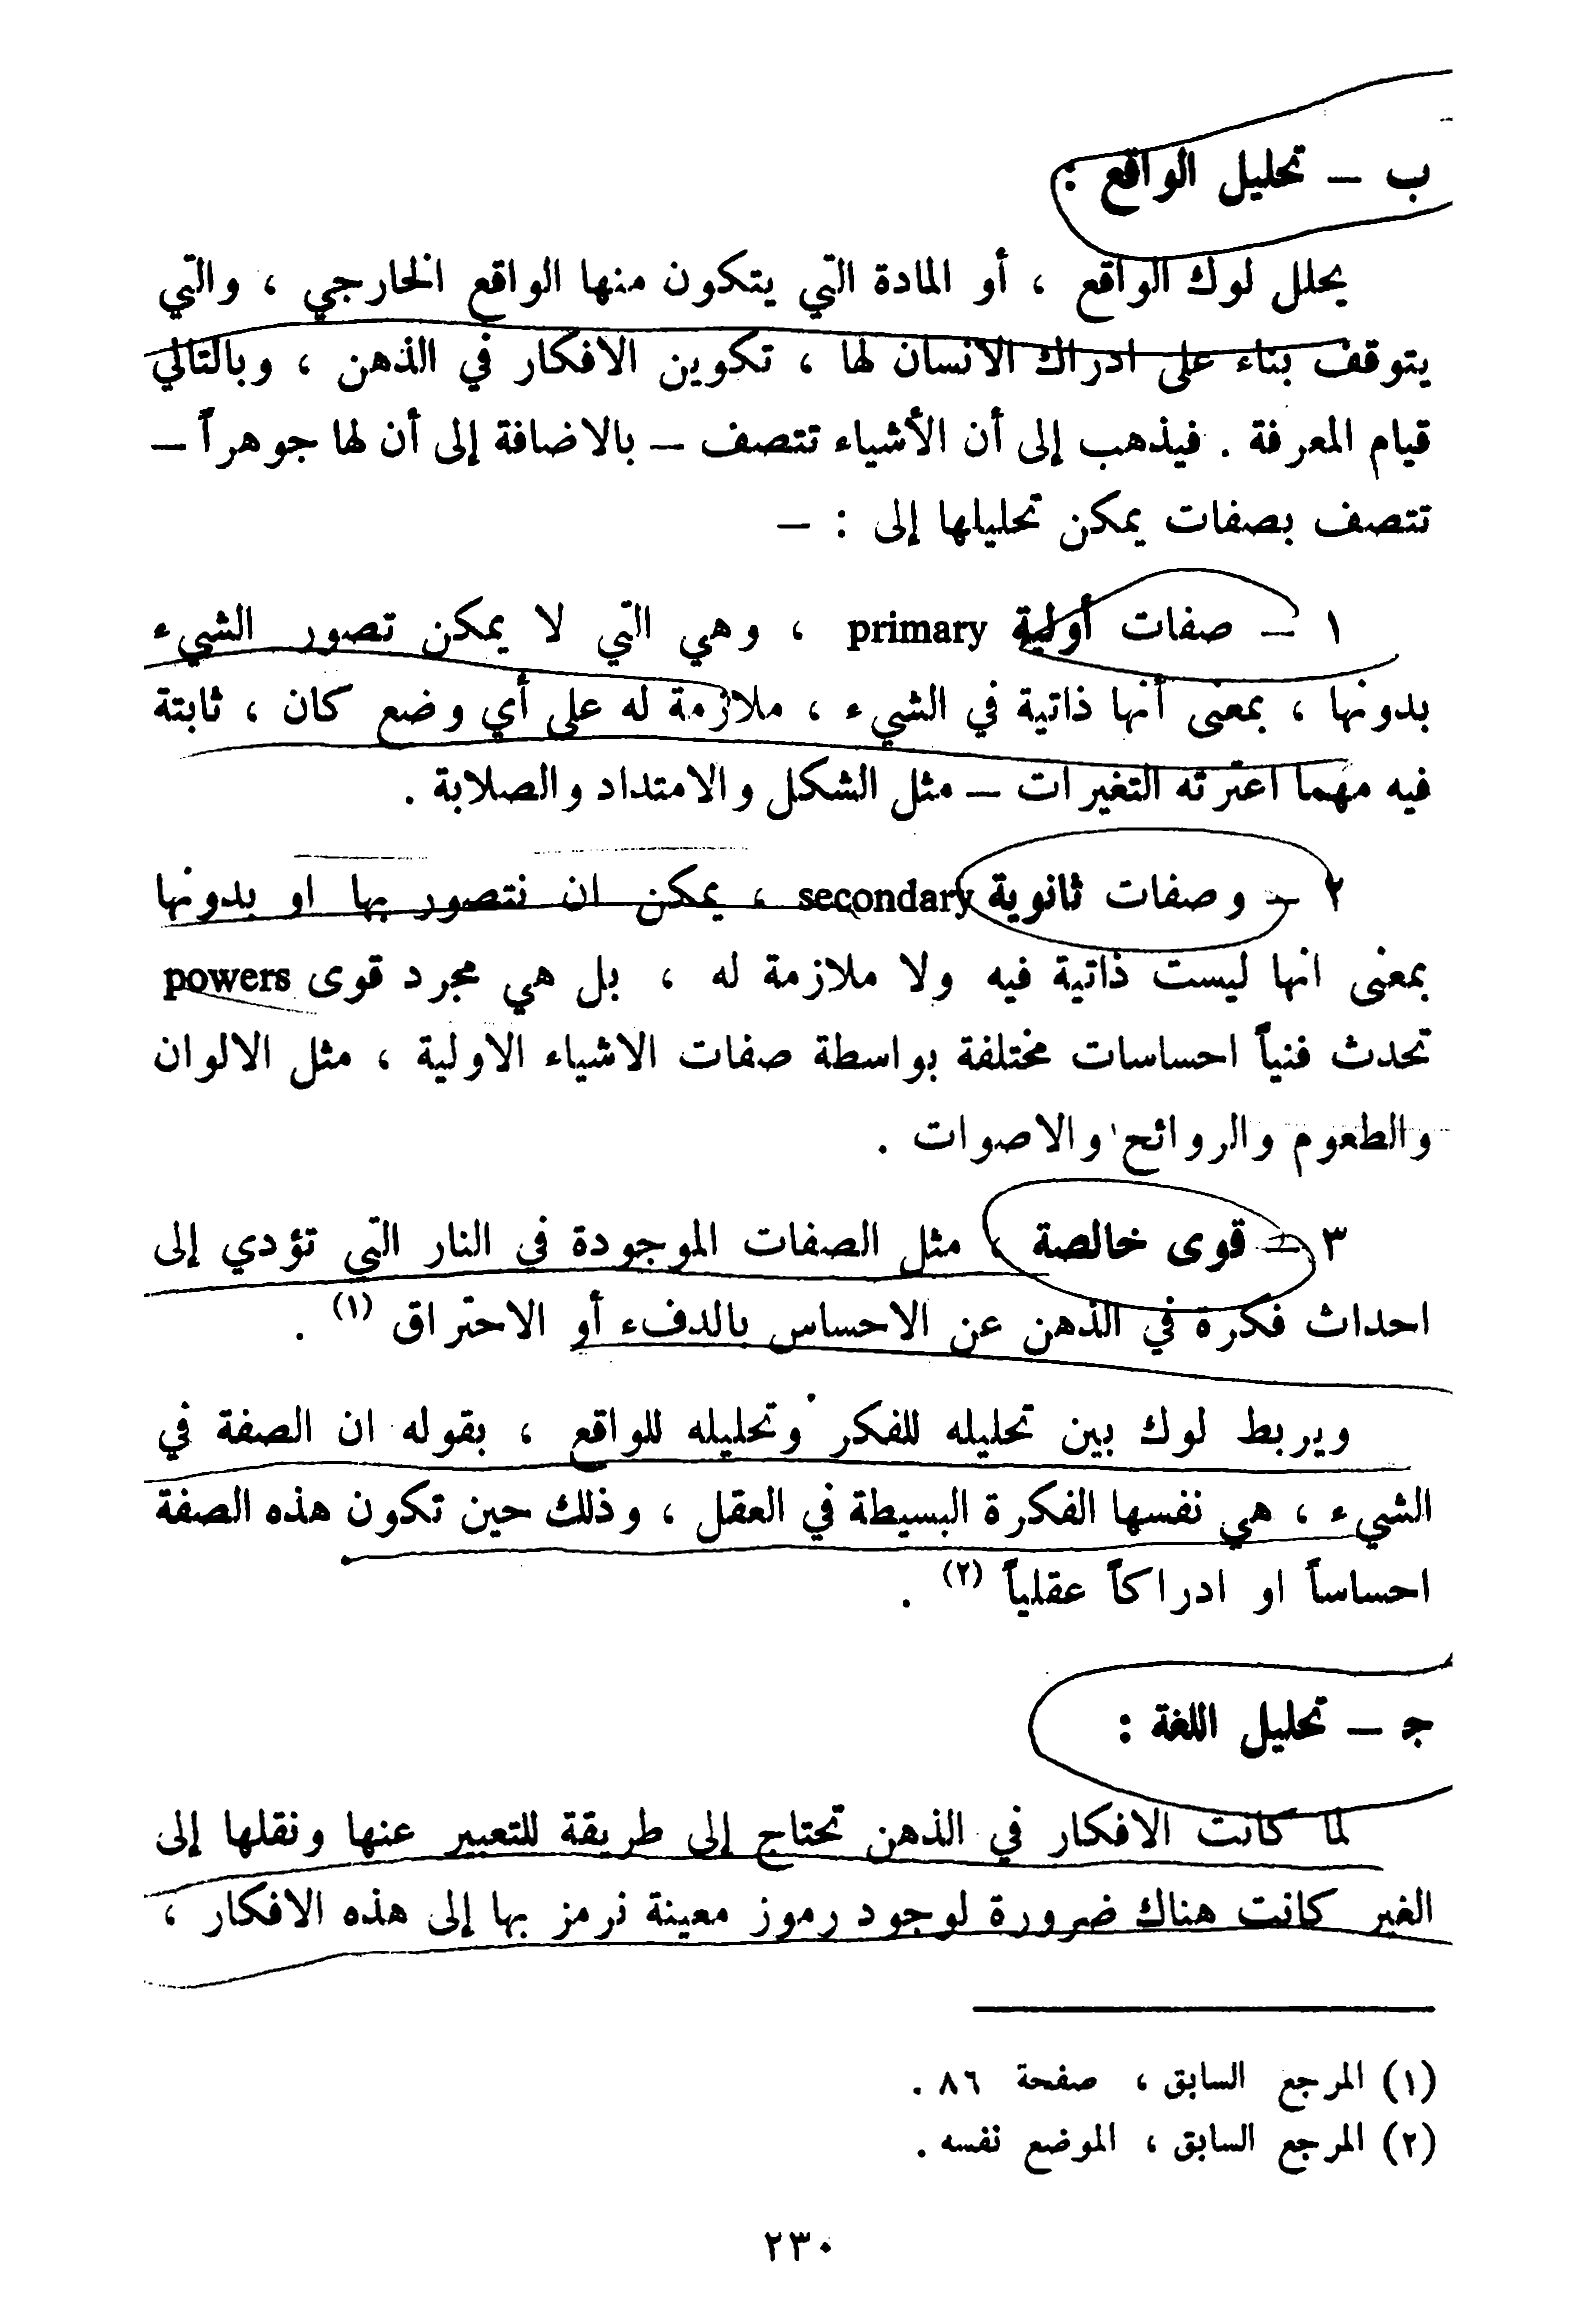 ب – تحليل الواقع :
يحلل لوك الواقع ، أو المادة التي يتكون منها الواقع الخارجي ، والتي
يتوقف بناء على ادراك الانسان لها ، تكوين الافكار في الذهن ، وبالتالي
قيام المعرفة . فيذهب إلى أن الأشياء تتصف – بالاضافة إلى أن لها جوهراً –
تتصف بصفات يمكن تحليلها إلى : –
١ – صفات أولية primary ، وهي التي لا يمكن تصور الشيء
بدونها ، بمعنى أنها ذاتية في الشيء ، ملازمة له على أي وضع كان ، ثابتة
فيه مهما اعترته التغيرات – مثل الشكل والامتداد والصلابة .
٢ – وصفات ثانوية secondary ، يمكن ان نتصور بها او بدونها
بمعنى انها ليست ذاتية فيه ولا ملازمة له ، بل هي مجرد قوى powers
تحدث فنياً احساسات مختلفة بواسطة صفات الاشياء الاولية ، مثل الالوان
والطعوم والروائح والاصوات .
٣ – قوى خالصة ، مثل الصفات الموجودة في النار التي تؤدي إلى
احداث فكرة في الذهن عن الاحساس بالدفء أو الاحتراق (١) .
ويربط لوك بين تحليله للفكر وتحليله للواقع ، بقوله ان الصفة في
الشيء ، هي نفسها الفكرة البسيطة في العقل ، وذلك حين تكون هذه الصفة
احساساً او ادراكاً عقلياً (٢) .
جـ – تحليل اللغة :
لما كانت الافكار في الذهن تحتاج إلى طريقة للتعبير عنها ونقلها إلى
الغير كانت هناك ضرورة لوجود رموز معينة نرمز بها إلى هذه الافكار ،
(١) المرجع السابق ، صفحة ٨٦ .
(٢) المرجع السابق ، الموضع نفسه .
٢٣٠